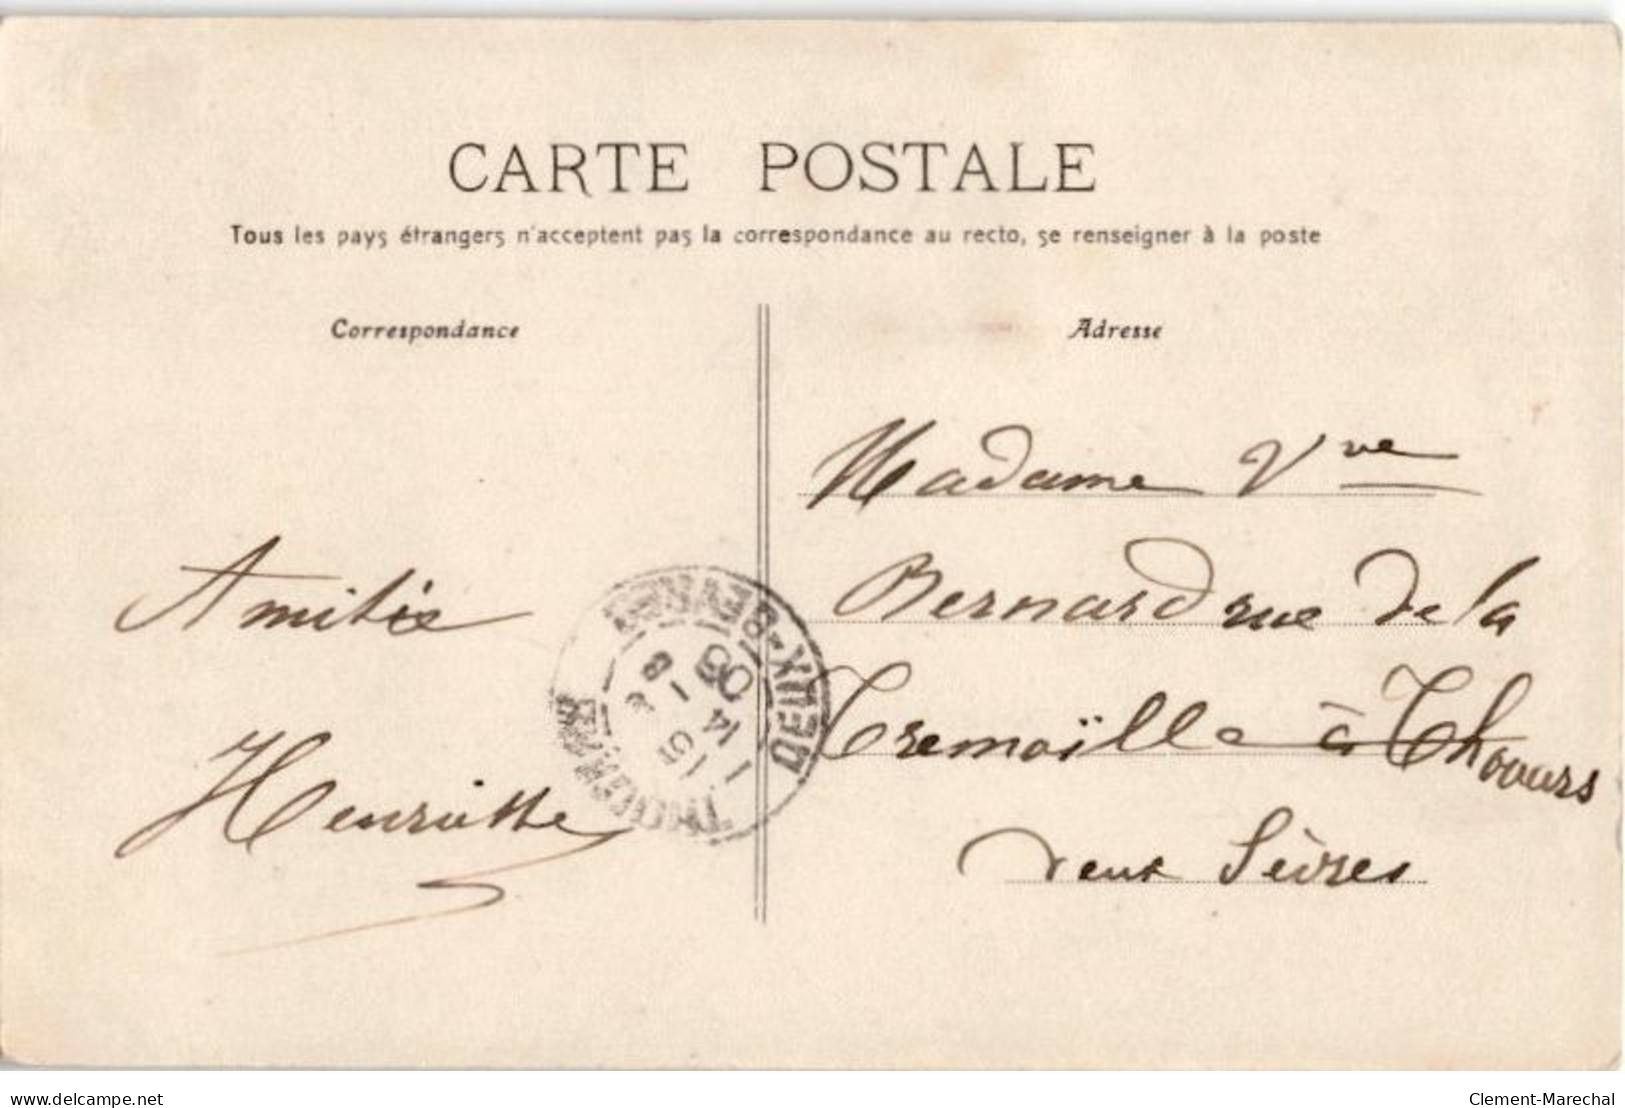 CARTE POSTALE
Tous les pays étrangers n'acceptent pas la correspondance au recto, se renseigner à la poste
Correspondance
Amitié
Henriette
Adresse
Madame Vve
Bernard rue de la
Tremoïlle à Thouars
Deux Sèvres
DEUX-SEVRES
www.delcampe.net
Clement-Marechal